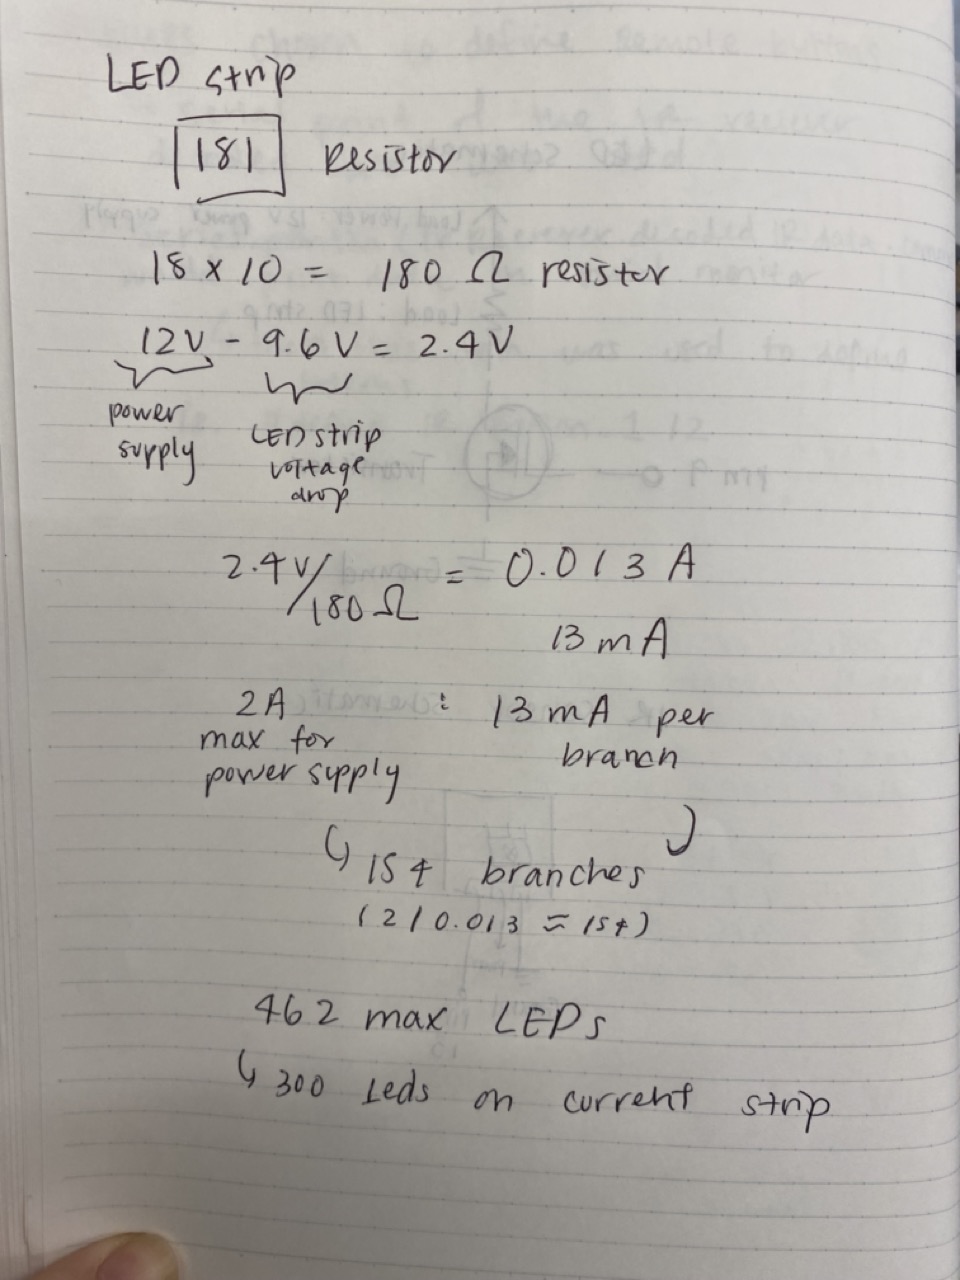 LED strip
181 Resistor
18 x 10 = 180 Ω resistor
12V - 9.6V = 2.4V
power supply
LED strip voltage drop
2.4V/180Ω = 0.013 A
13 mA
2A : 13 mA per
max for branch
power supply
↳ 154 branches
(2/0.013 ≈ 154)
462 max LEDs
↳ 300 Leds on current strip